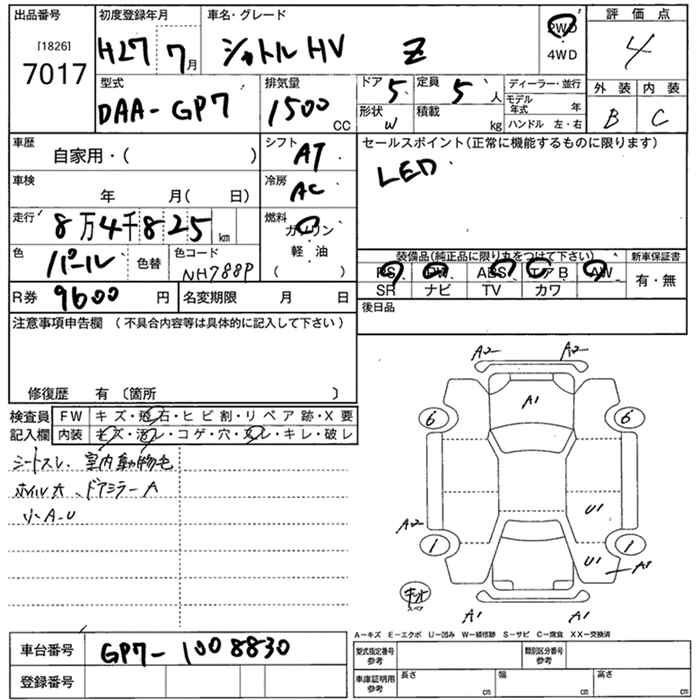 出品番号 初度登録年月 車名・グレード 2WD 評価点
[1826] 7017 H27 7月 シャトルHV Z 4WD 4
型式 排気量 ドア 5 定員 5人 ディーラー・並行 外装 内装
DAA-GP7 1500CC 形状 W 積載 kg モデル年式 年 B C
ハンドル 左・右
車歴 シフト セールスポイント(正常に機能するものに限ります)
自家用・( ) AT LED
車検 冷房
年 月( 日) AC
走行 8万4千825km 燃料 ガソリン
軽・油
( )
色 パール 色替 色コード NH788P
装備品(純正品に限り丸をつけて下さい) 新車保証書
PS PW ABS エアB AW 有・無
SR ナビ TV カワ
R券 9600円 名変期限 月 日
後日品
注意事項申告欄 (不具合内容等は具体的に記入して下さい)
修復歴 有 〔箇所 〕
検査員 FW キズ・飛石・ヒビ割・リペア跡・X要
記入欄 内装 キズ・汚レ・コゲ・穴・スレ・キレ・破レ
シートスレ、室内動物毛
ホイル大、ドアミラーA
小A.U
A2 A2
A1
6 6
U1
A2
1 U1 1
A1
キット
スペア
A1 A1
A-キズ E-エクボ U-凹み W-補修跡 S-サビ C-腐食 XX-交換済
車台番号 GP7-1008830
登録番号
型式指定番号 参考 類別区分番号 参考
車庫証明用 参考 長さ cm 幅 cm 高さ cm